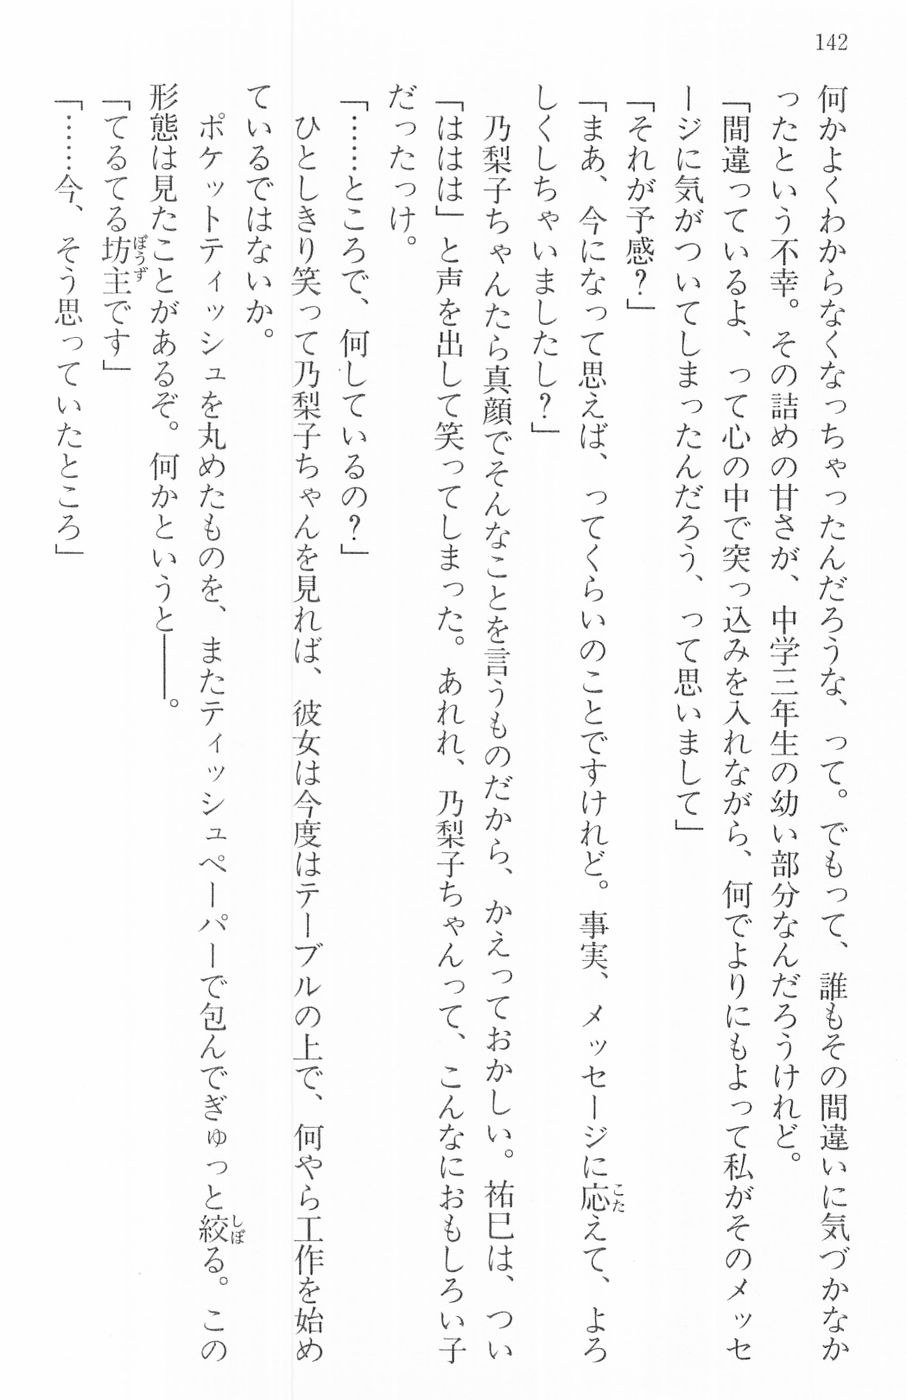 142
何かよくわからなくなっちゃったんだろうな、って。でもって、誰もその間違いに気づかなか
ったという不幸。その詰めの甘さが、中学三年生の幼い部分なんだろうけれど。
「間違っているよ、って心の中で突っ込みを入れながら、何でよりにもよって私がそのメッセ
ージに気がついてしまったんだろう、って思いまして」
「それが予感？」
「まあ、今になって思えば、ってくらいのことですけれど。事実、メッセージに応えて、よろ
しくしちゃいましたし？」
　乃梨子ちゃんたら真顔でそんなことを言うものだから、かえっておかしい。祐巳は、つい
「ははは」と声を出して笑ってしまった。あれれ、乃梨子ちゃんって、こんなにおもしろい子
だったたっけ。
「……ところで、何しているの？」
　ひとしきり笑って乃梨子ちゃんを見れば、彼女は今度はテーブルの上で、何やら工作を始め
ているではないか。
　ポケットティッシュを丸めたものを、またティッシュペーパーで包んでぎゅっと絞る。この
形態は見たことがあるぞ。何かというと――。
「てるてる坊主です」
「……今、そう思っていたところ」